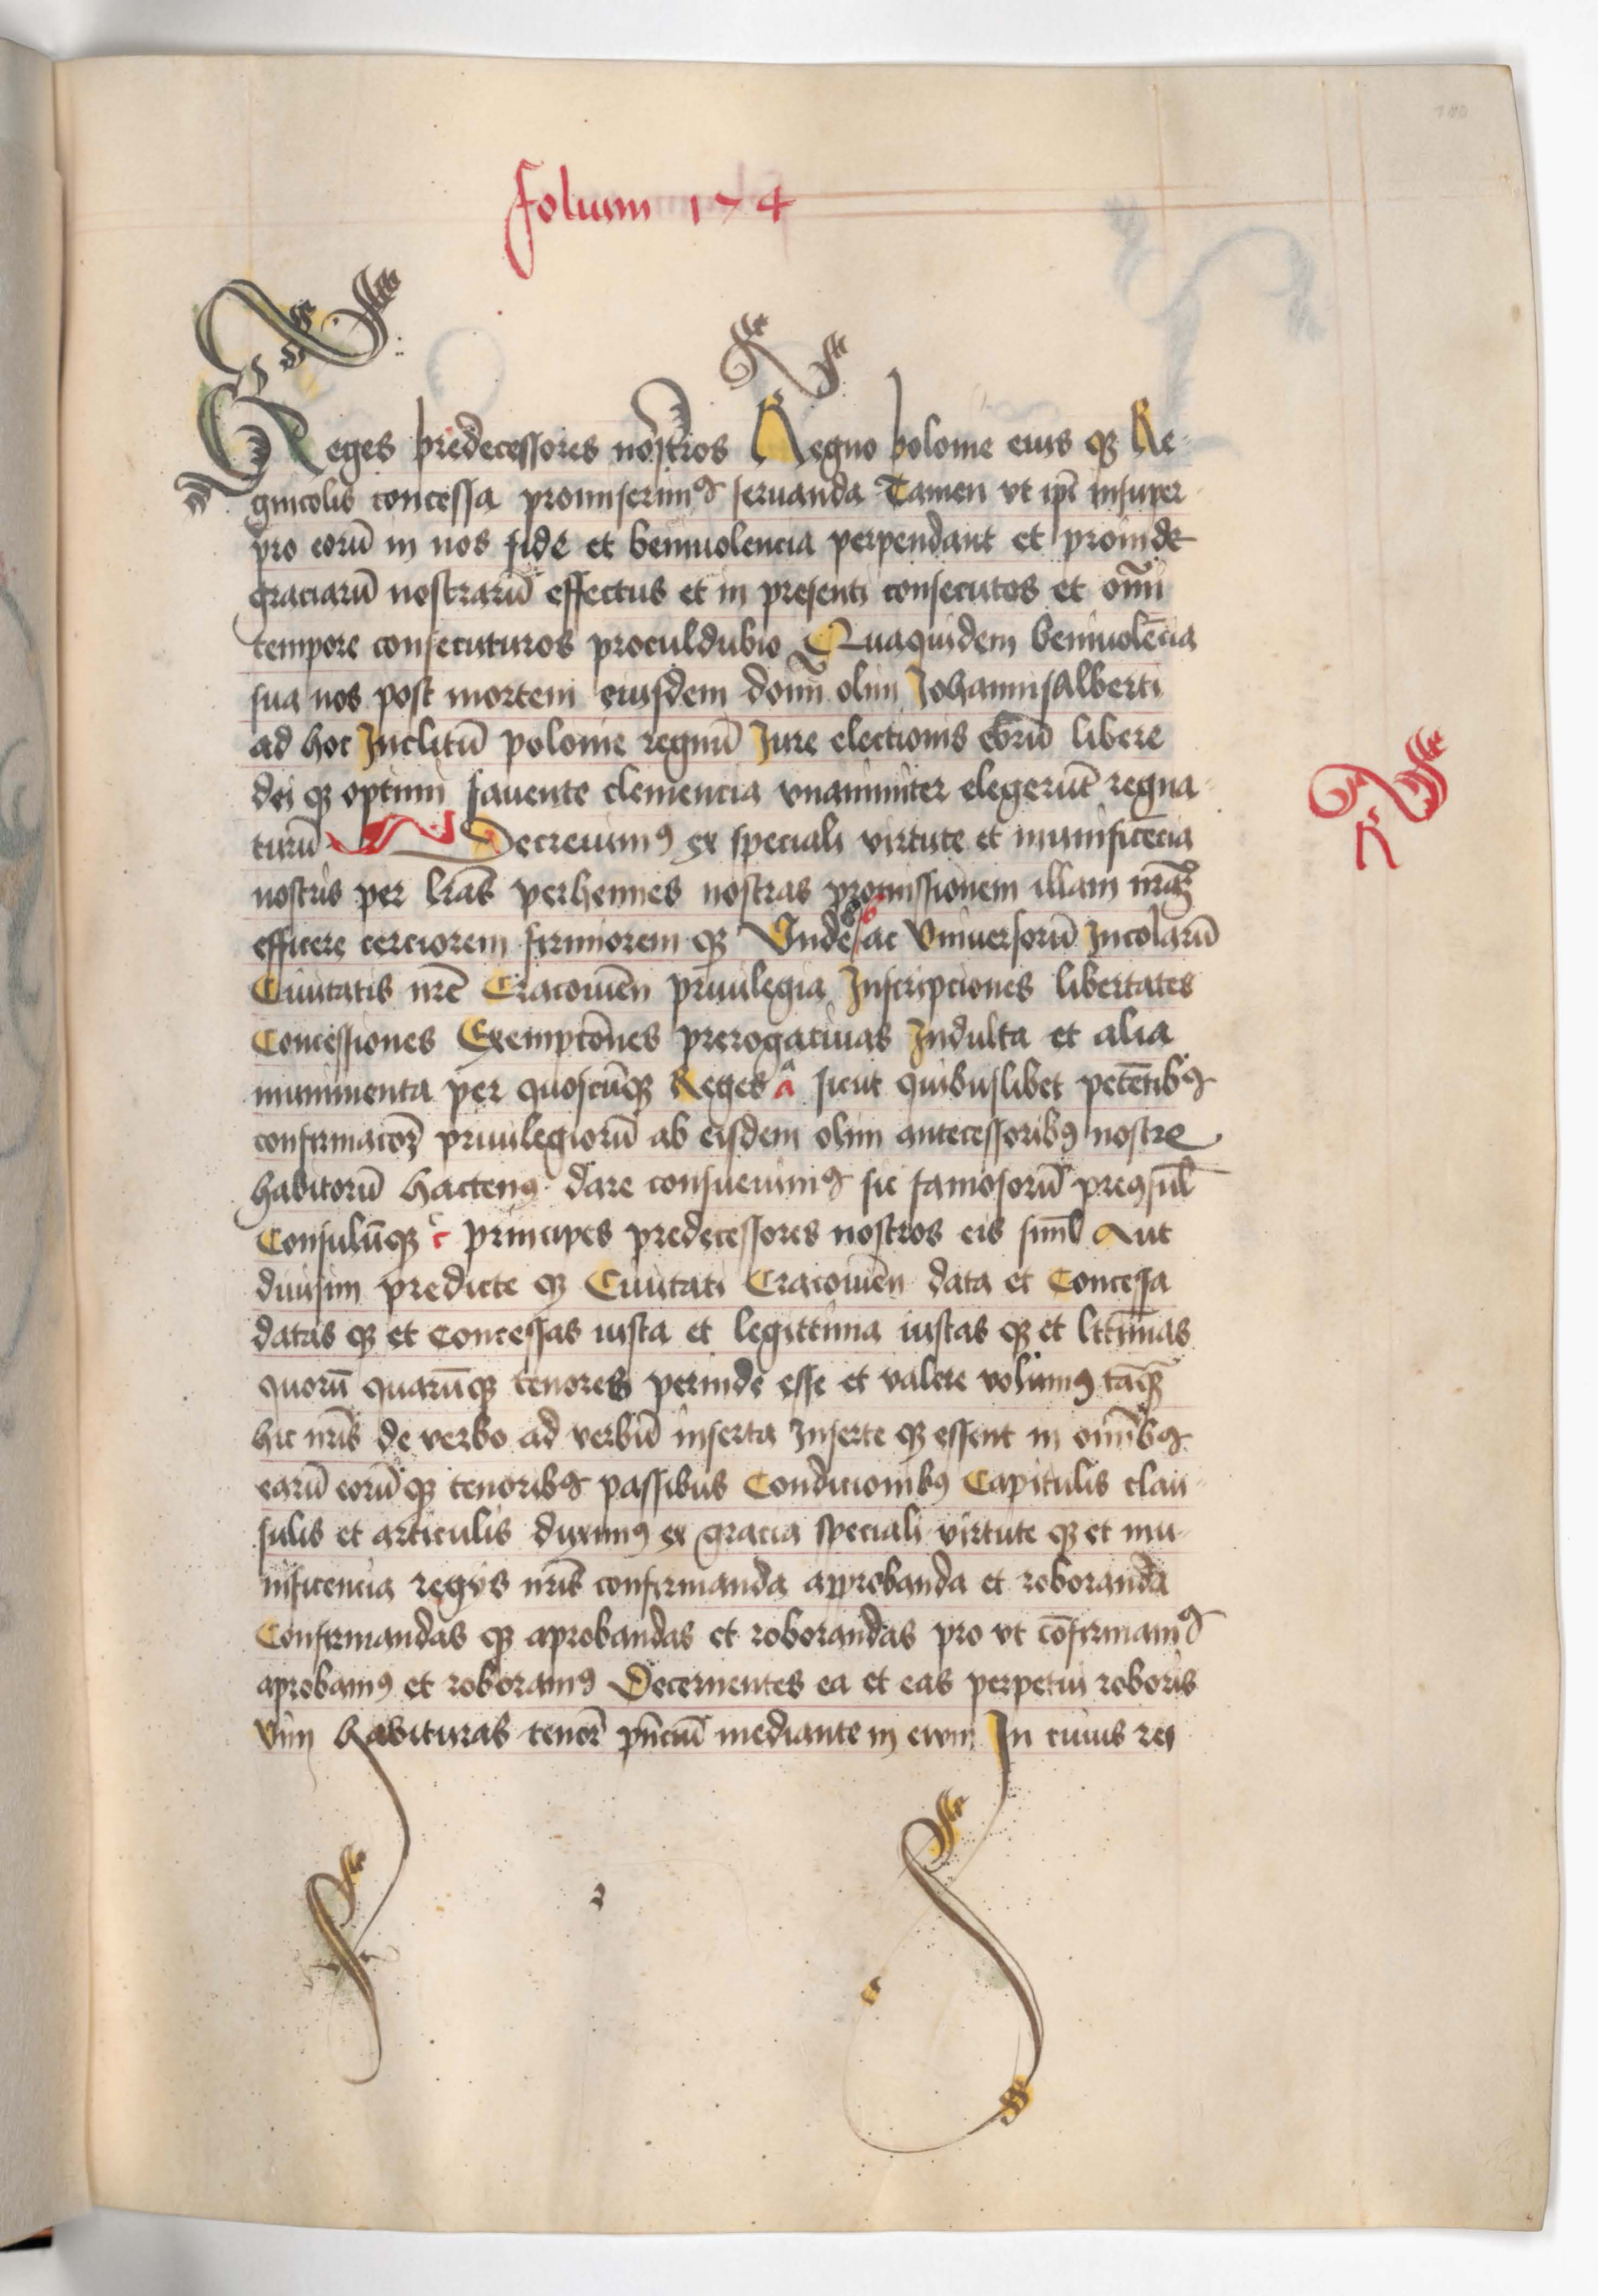 folium 174
Reges predecessores nostros Regno polonie eius q Re-
gnicolis concessa promiserimꝰ seruanda Tamen vt ip̄i insuper
pro eorū in nos fide et beniuolencia perpendant et proinde
graciarū nostrarū effectus et in presenti consecutos et om̄i
tempore consecuturos proculdubio Quaquidem beniuolēcia
sua nos post mortem eiusdem domī olim Johannisalberti
ad hoc Inclitū polonie regnū Jure electionis eorū libere
dei qꝫ optimi fauente clemencia vnanimiter elegerūt regna-
turū Decreuimꝰ ex speciali virtute et munificēcia
nostris per l̄ras perhennes nostras promissionem illam nr̄aꝫ
efficere cerciorem firmiorem qꝫ Vnde b ac Vniuersorū Incolarū
Ciuitatis nr̄e Cracouien̄ priuilegia Inscripciones libertates
Concessiones Exempcōnes prerogatiuas Indulta et alia
munimenta per quoscūqꝫ Reges a sicut quibuslibet petētibꝰ
confirmacoꝝ priuilegiorū ab eisdem olim antecessoribꝰ nostre
habitorū hactenꝰ dare consueuimꝰ sic famosorū preꝯsul̄
Consulūqꝫ c principes predecessores nostros eis siml̄ Aut
diuisim predicte qꝫ Ciuitati Cracouien̄ data et Concessa
datas qꝫ et concessas iusta et legittima iustas qꝫ et l̄ttīmas
quorū quarūqꝫ tenores perinde esse et valere volumꝰ tāqꝫ
hic nr̄is de verbo ad verbū inserta Inserte qꝫ essent in om̄ibꝰ
earū eorūqꝫ tenoribꝰ passibus Condicionibꝰ Capitulis clau-
sulis et articulis duximꝰ ex gracia speciali virtute qꝫ et mu-
nificencia regys nr̄is confirmanda approbanda et roboranda
Confirmandas qꝫ aprobandas et roborandas pro vt cōfirmamꝰ
aprobamꝰ et roboramꝰ Decernentes ea et eas perpetui roboris
Vim habituras tenor̄ pn̄ciū mediante in ewm In cuius rei